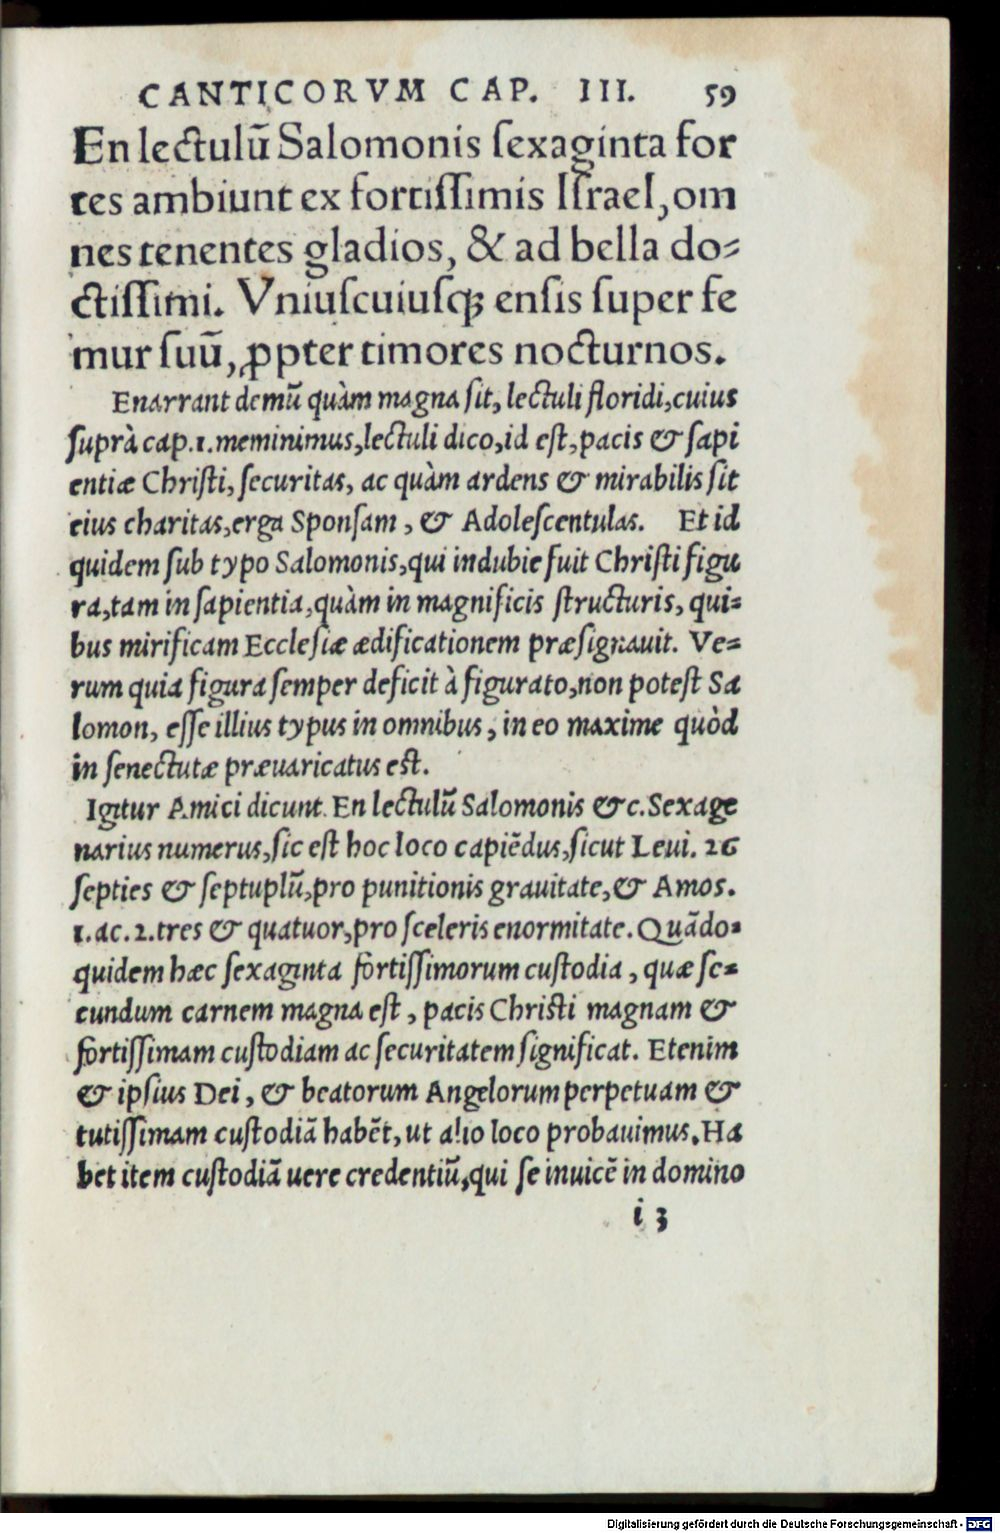 CANTICORVM CAP. III. 59
En lectulū Salomonis ſexaginta for
tes ambiunt ex fortiſſimis Iſrael, om
nes tenentes gladios, & ad bella do⸗
ctiſſimi. Vniuſcuiuſqꝫ enſis ſuper fe
mur ſuū, ꝓpter timores nocturnos.
Enarrant demū quàm magna ſit, lectuli floridi, cuius
ſuprà cap. 1. meminimus, lectuli dico, id eſt, pacis & ſapi
entiæ Chriſti, ſecuritas, ac quàm ardens & mirabilis ſit
eius charitas, erga Sponſam, & Adoleſcentulas. Et id
quidem ſub typo Salomonis, qui indubie fuit Chriſti figu
ra, tam in ſapientia, quàm in magnificis ſtructuris, qui⸗
bus mirificam Eccleſiæ ædificationem præſignauit. Ve⸗
rum quia figura ſemper deficit à figurato, non poteſt Sa
lomon, eſſe illius typus in omnibus, in eo maxime quòd
in ſenectutæ præuaricatus eſt.
Igitur Amici dicunt. En lectulū Salomonis &c. Sexage
narius numerus, ſic eſt hoc loco capiēdus, ſicut Leui. 26
ſepties & ſeptuplū, pro punitionis grauitate, & Amos.
1. ac. 2. tres & quatuor, pro ſceleris enormitate. Quādo⸗
quidem hæc ſexaginta fortiſſimorum cuſtodia, quæ ſe⸗
cundum carnem magna eſt, pacis Chriſti magnam &
fortiſſimam cuſtodiam ac ſecuritatem ſignificat. Etenim
& ipſius Dei, & beatorum Angelorum perpetuam &
tutiſſimam cuſtodiā habēt, ut alio loco probauimus. Ha
bet item cuſtodiā uere credentiū, qui ſe inuicē in domino
i 3
Digitalisierung gefördert durch die Deutsche Forschungsgemeinschaft - DFG